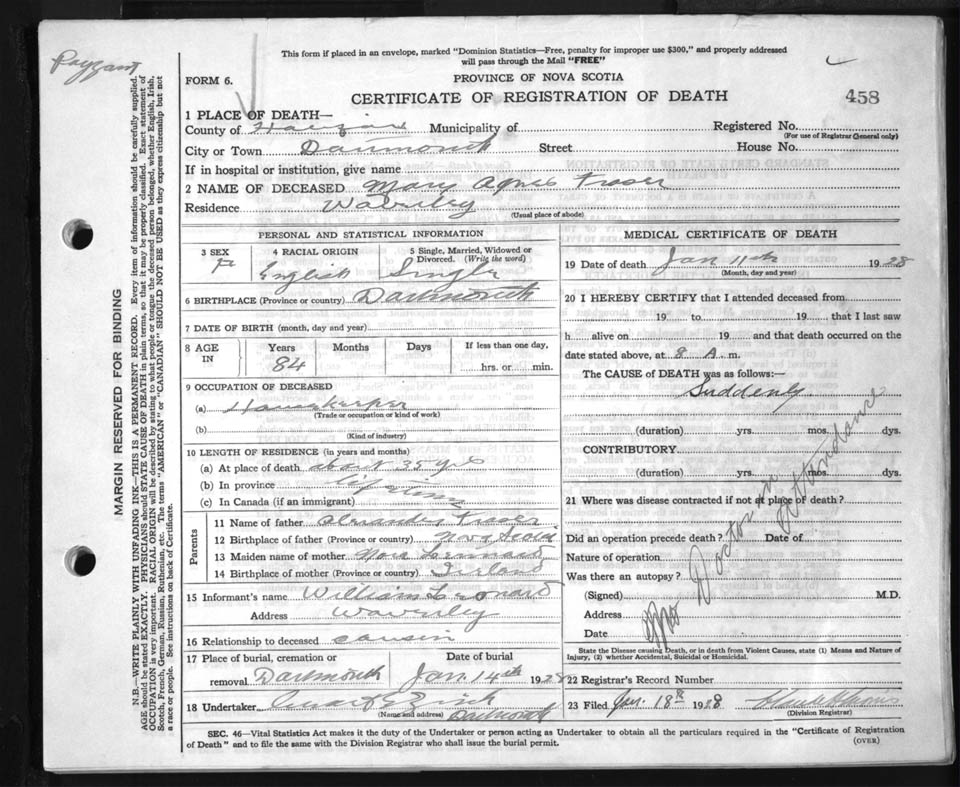 Payzant
This form if placed in an envelope, marked "Dominion Statistics—Free, penalty for improper use $300," and properly addressed
will pass through the Mail "FREE"
FORM 6.
PROVINCE OF NOVA SCOTIA
CERTIFICATE OF REGISTRATION OF DEATH
458
1 PLACE OF DEATH—
County of Halifax Municipality of Registered No.
(For use of Registrar General only)
City or Town Dartmouth Street House No.
If in hospital or institution, give name
2 NAME OF DECEASED Mary Agnes Fraser
Residence Waverley
(Usual place of abode)
PERSONAL AND STATISTICAL INFORMATION
3 SEX 4 RACIAL ORIGIN 5 Single, Married, Widowed or
Divorced. (Write the word)
Fe English Single
6 BIRTHPLACE (Province or country) Dartmouth
7 DATE OF BIRTH (month, day and year)
8 AGE IN Years Months Days If less than one day,
84 hrs. or min.
9 OCCUPATION OF DECEASED
(a) Housekeeper
(Trade or occupation or kind of work)
(b)
(Kind of industry)
10 LENGTH OF RESIDENCE (in years and months)
(a) At place of death about 35 yrs
(b) In province lifetime
(c) In Canada (if an immigrant)
Parents
11 Name of father Alexander Fraser
12 Birthplace of father (Province or country) Nova Scotia
13 Maiden name of mother Nora
14 Birthplace of mother (Province or country) Irland
15 Informant's name William Leonard
Address Waverley
16 Relationship to deceased cousin
17 Place of burial, cremation or Date of burial
removal Dartmouth Jan. 14th 1928
18 Undertaker
(Name and address) Dartmouth
MEDICAL CERTIFICATE OF DEATH
19 Date of death Jan 11th 1928
(Month, day and year)
20 I HEREBY CERTIFY that I attended deceased from
19 to 19, that I last saw
h alive on 19 and that death occurred on the
date stated above, at 8 A. m.
The CAUSE of DEATH was as follows:—
Suddenly
(duration) yrs. mos. dys.
CONTRIBUTORY
(duration) yrs. mos. dys.
21 Where was disease contracted if not at place of death?
Did an operation precede death? Date of
Nature of operation
Was there an autopsy?
(Signed) M.D.
Address
Date
No Doctor in Attendance
State the Disease causing Death, or in death from Violent Causes, state (1) Means and Nature of
Injury, (2) whether Accidental, Suicidal or Homicidal.
22 Registrar's Record Number
23 Filed Jan. 18th 1928
(Division Registrar)
SEC. 46—Vital Statistics Act makes it the duty of the Undertaker or person acting as Undertaker to obtain all the particulars required in the "Certificate of Registration
of Death" and to file the same with the Division Registrar who shall issue the burial permit.
(OVER)
MARGIN RESERVED FOR BINDING
N.B.—WRITE PLAINLY WITH UNFADING INK—THIS IS A PERMANENT RECORD. Every item of information should be carefully supplied.
AGE should be stated EXACTLY. PHYSICIANS should STATE CAUSE OF DEATH in plain terms, so that it may be properly classified. Exact statement of
OCCUPATION is very important. RACIAL ORIGIN will be described by stating to what people or tongue the deceased person belonged, whether English, Irish,
Scotch, French, German, Russian, Ruthenian, etc. The terms "AMERICAN" or "CANADIAN" SHOULD NOT BE USED as they express citizenship but not
a race or people. See instructions on back of Certificate.